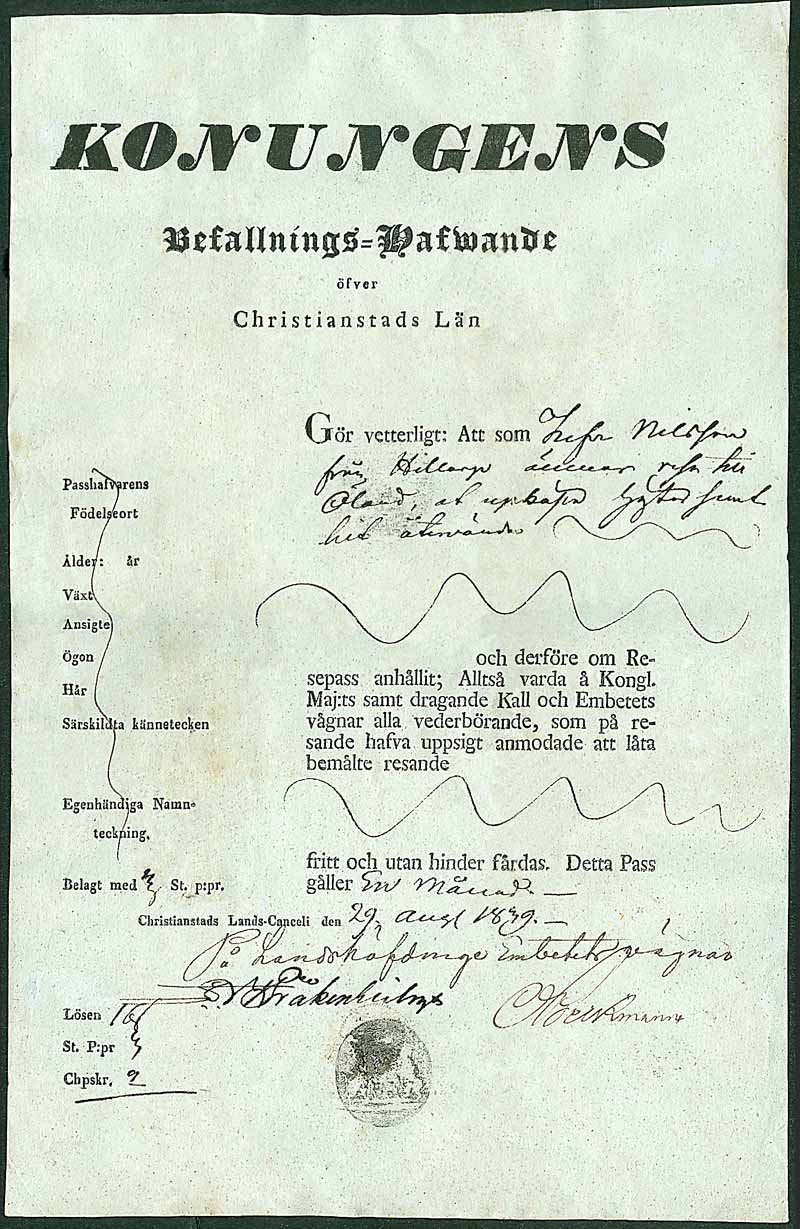 KONUNGENS
Befallnings=Hafwande
öfver
Christianstads Län
Gör vetterligt: Att som Nilsson
från Hillarp ämnar resa till
Öland, at upköpa samt
hit återvända
Passhafvarens
Födelseort
Ålder: år
Växt
Ansigte
Ögon
Hår
Särskildta kännetecken
Egenhändiga Namn-
teckning,
Belagt med St. p:pr.
och derföre om Re-
sepass anhållit; Alltså varda å Kongl.
Maj:ts samt dragande Kall och Embetets
vågnar alla vederbörande, som på re-
sande hafva uppsigt anmodade att låta
bemålte resande
fritt och utan hinder fårdas. Detta Pass
gåller En Månad. —
Christianstads Lands-Canceli den 29 Aug 1839. —
På Landshöfdinge Embetets vägnar
Lösen
St. P:pr
Chpskr.